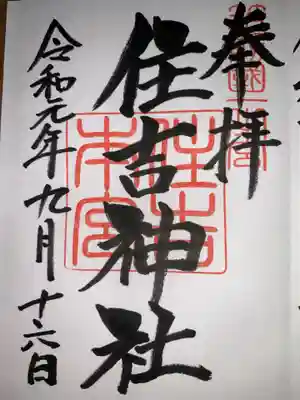 奉拝
住吉神社
令和元年九月十六日
住吉
本宮